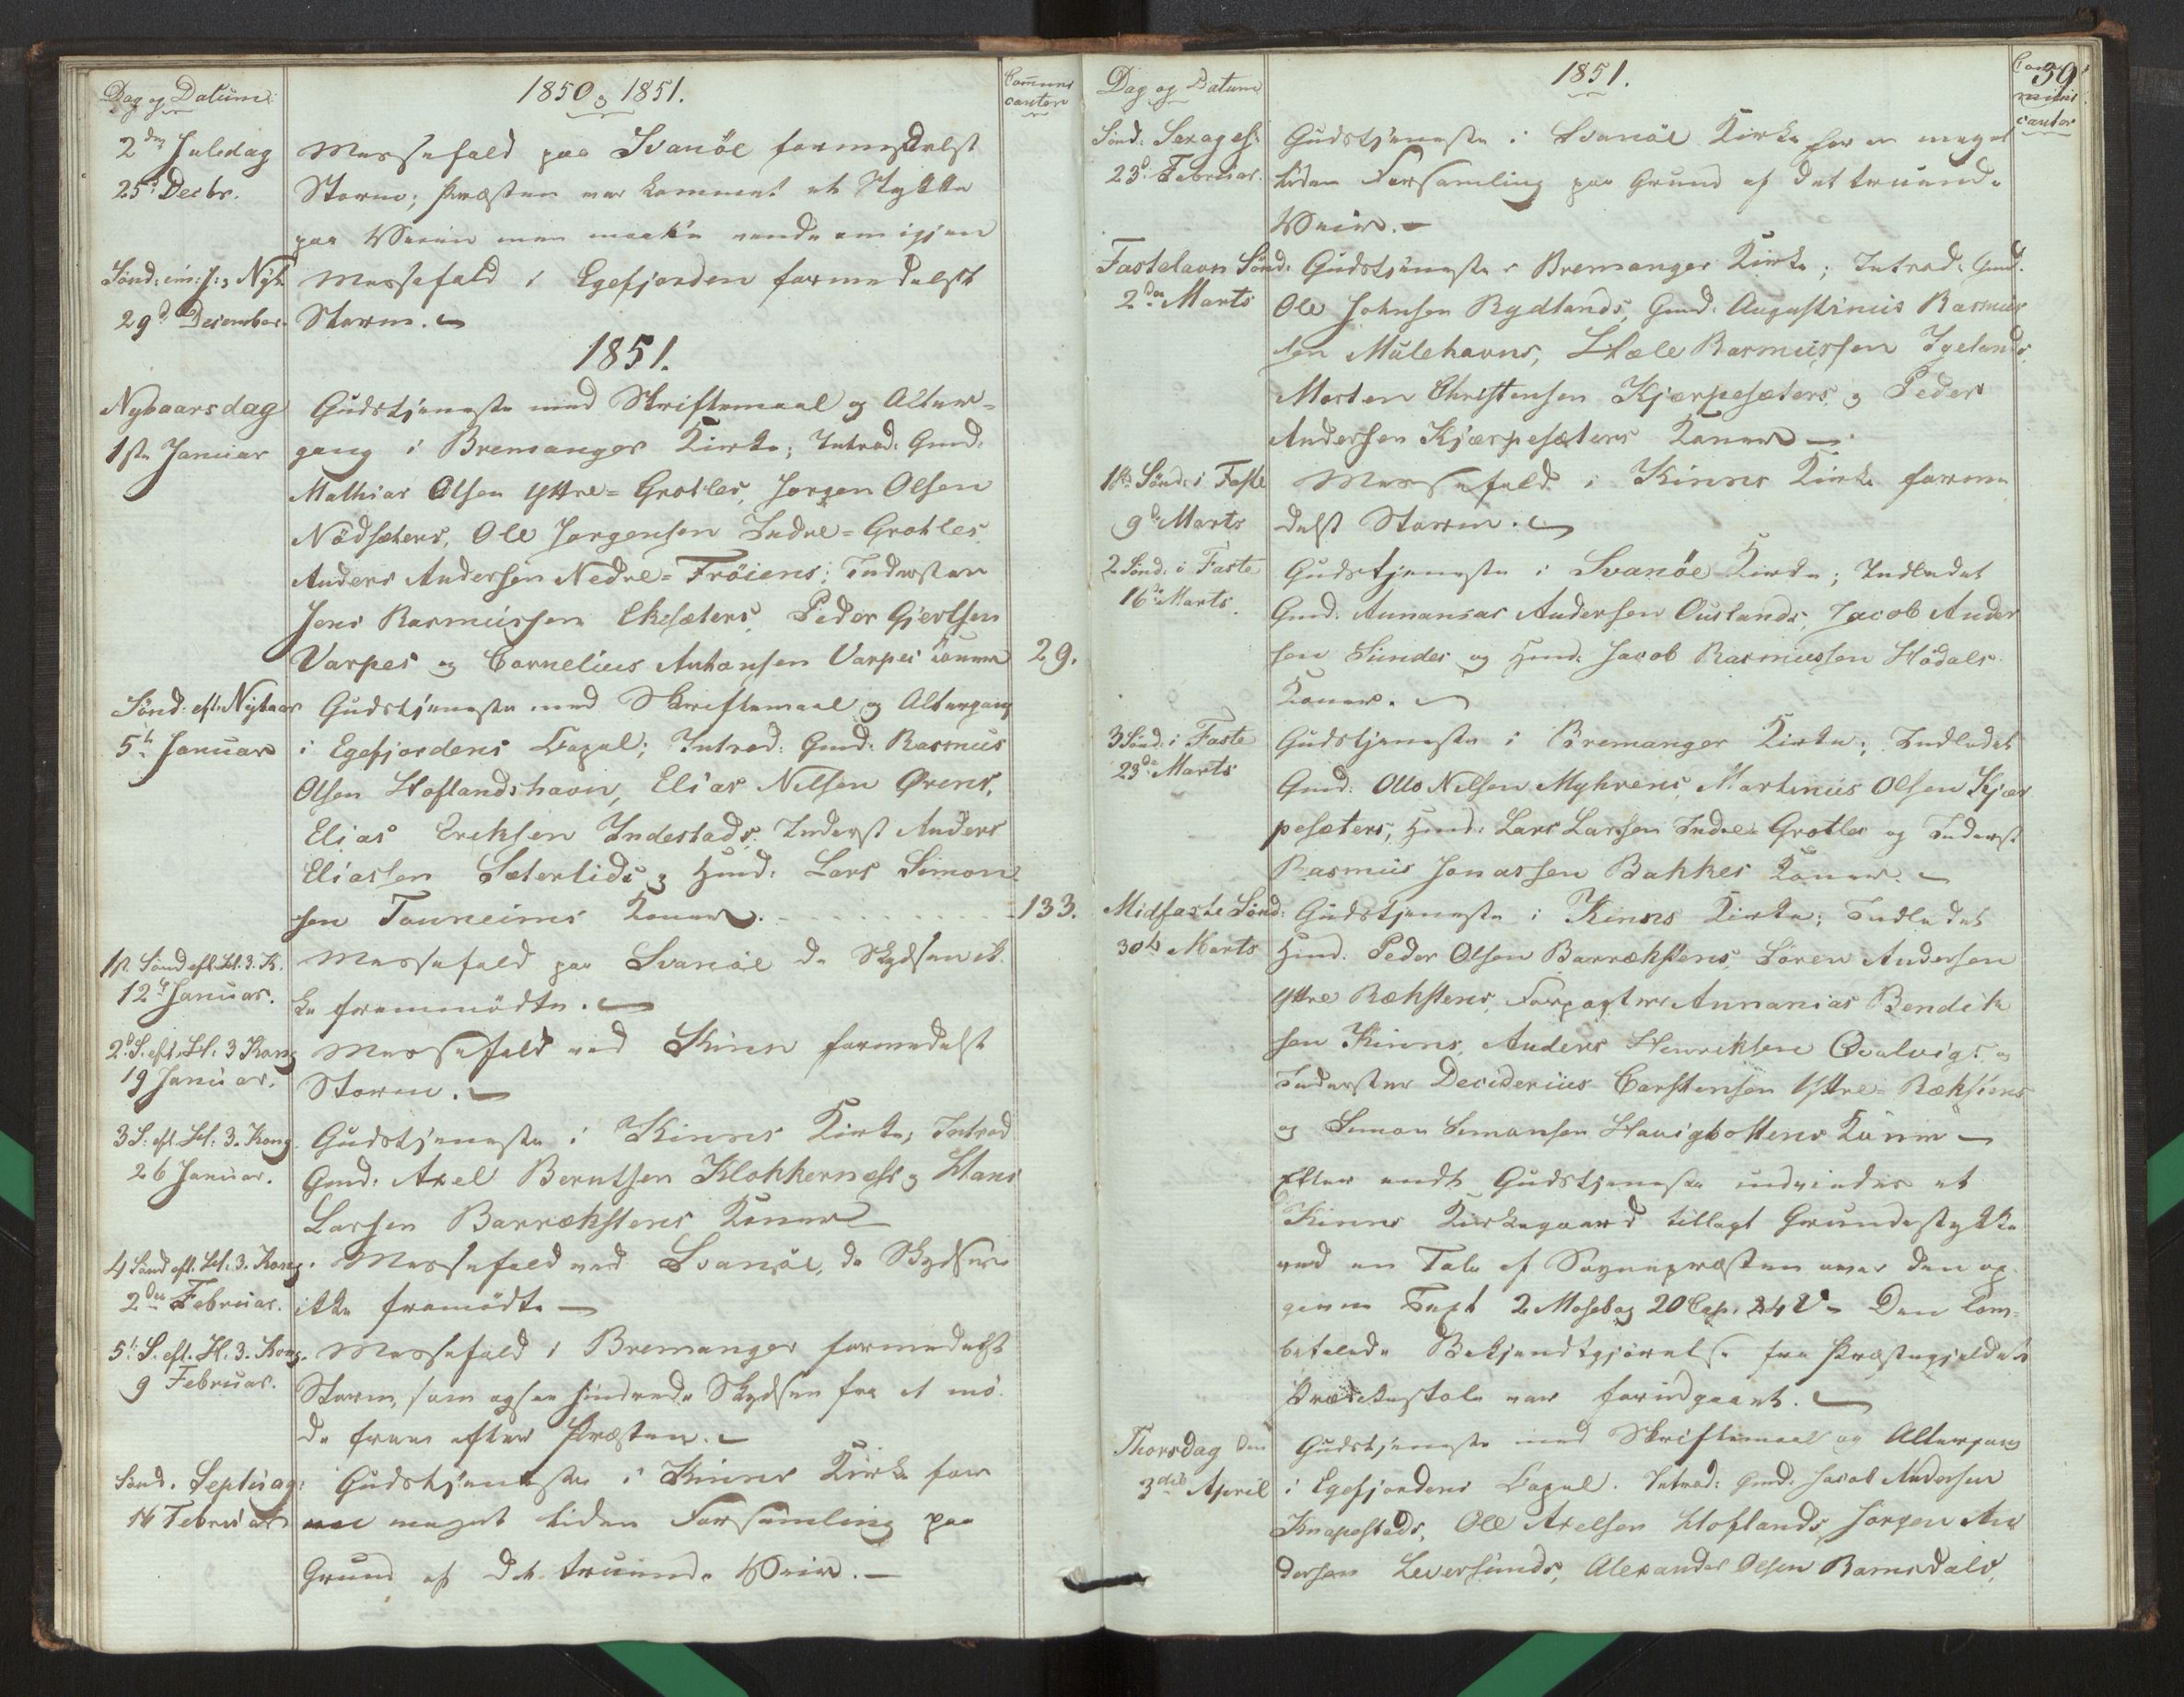 Dag og Datum
1850 og 1851.
Commu
canter
2den Juledag
25d Decbr.
Messefald paa Svanöe formedelst
Storm; Præsten var kommet et Stykke
paa Veien men maatte vende om igjen
Sönd: im: J: & Nyt
29d December.
Messefald i Egefjorden formedelst
Storm.
1851.
Nytaarsdag
1ste Januar
Gudstjeneste med Skriftemaal og Alter=
gang i Bremanger Kirke; Introd: Gmd:
Mathias Olsen Yttre=Grotles, Jørgen Olsen
Nödsæters, Ole Jørgensen Indre=Grotles
Anders Andersen Nedre=Fröiens; Inderster
Jens Rasmussen Ekesæters, Peder Gjertsen
Varpes og Cornelius Antonsen Varpes Koner 29.
Sönd: eft. Nytaar
5te Januar
Gudstjeneste med Skriftemaal og Altergang
i Egefjordens Capel; Introd: Gmd: Rasmus
Olsen Hoflandshavn, Elias Nilsen Ørens,
Elias Eriksen Indestads, Inderst Anders
Eliassen Sæterlids & Hmd: Lars Simon
sen Tonneims Koner. 133.
1st Sönd eft. H. 3. K.
12te Januar.
Messefald paa Svanöe da Skydsen ik
ke fremmödte.
2d S. eft. H. 3 Kong
19 Januar.
Messefald ved Kinn formedelst
Storm.
3 S. eft. H. 3. Kong.
26 Januar.
Gudstjeneste i Kinns Kirke; Introd
Gmd: Axel Berntsen Klokkernæs & Hans
Larsen Barrækstens Koner
4 Sönd eft. H. 3. Kong.
2den Februar.
Messefald ved Svanöe, da Skydsen
ikke fremödte
5te S. eft. H. 3. Kong.
9 Februar.
Messefald i Bremanger formedelst
Storm, som ogsaa hindrede Skydsen fra at mö
de frem efter Præsten.
Sönd. Septuag:
16 Februar
Gudstjeneste i Kinns Kirke for
en meget liden Forsamling paa
Grund af det truende Veir.
Dag og Datum
1851.
Com
munis
cantes
59
Sönd: Sexages:
23d Februar.
Gudstjeneste i Svanöe Kirke for en meget
liden Forsamling paa Grund af det truende
Veir.
Fastelavn Sönd:
2den Marts
Gudstjeneste i Bremanger Kirke; Introd: Gmd.
Ole Johnsen Rydlands, Gmd: Augustinus Rasmus
sen Mulehavns, Stæle Rasmussen Igelands,
Morten Christensen Kjærpesæters, & Peder
Andersen Kjærpesæters Koner
1ste Sönd: i Faste
9de Marts
Messefald i Kinns Kirke forme
delst Storm.
2 Sönd: i Faste
16de Marts.
Gudstjeneste i Svanöe Kirke; Indledet
Gmd: Annanias Andersen Ouslands, Jacob Ander
sen Sundes og Hmd: Jacob Rasmussen Hödals
Koner.
3 Sönd: i Faste
23de Marts
Gudstjeneste i Bremanger Kirke; Indledet
Gmd: Otto Nilsen Myhrens, Martinus Olsen Kjær
pesæters, Hmd: Lars Larsen Indre=Grotles og Inderst
Rasmus Jonassen Bakkes Koner.
Midfaste Sönd:
30te Marts
Gudstjeneste i Kinns Kirke; Indledet
Hmd: Peder Olsen Barrækstens, Sören Andersen
Yttre Rækstens, Forpagter Annanias Bendik
sen Kinns, Anders Henriksen Qvalvigs, og
Inderster Deciderius Carstensen Yttre=Rækstens
og Simon Simonsen Havigbottens Koner
Efter endt Gudstjeneste indviedes et
Kinns Kirkegaard tillagt Grundestykke
ved en Tale af Sognepræsten over den op
givne Text 2 Mosebog 20 Cap. 24 V. Den lom=
befalede Bekjendtgjörelse fra Præstegjeldets
Prædikestole var foridgaaet.
Thorsdag den
3die April
Gudstjeneste med Skriftemaal og Altergang
i Egefjordens Capel. Introd: Gmd: Jacob Andersen
Knapestads, Ole Axelsen Hoflands, Jørgen An
dersen Leversunds, Alexander Olsen Ramsdals,